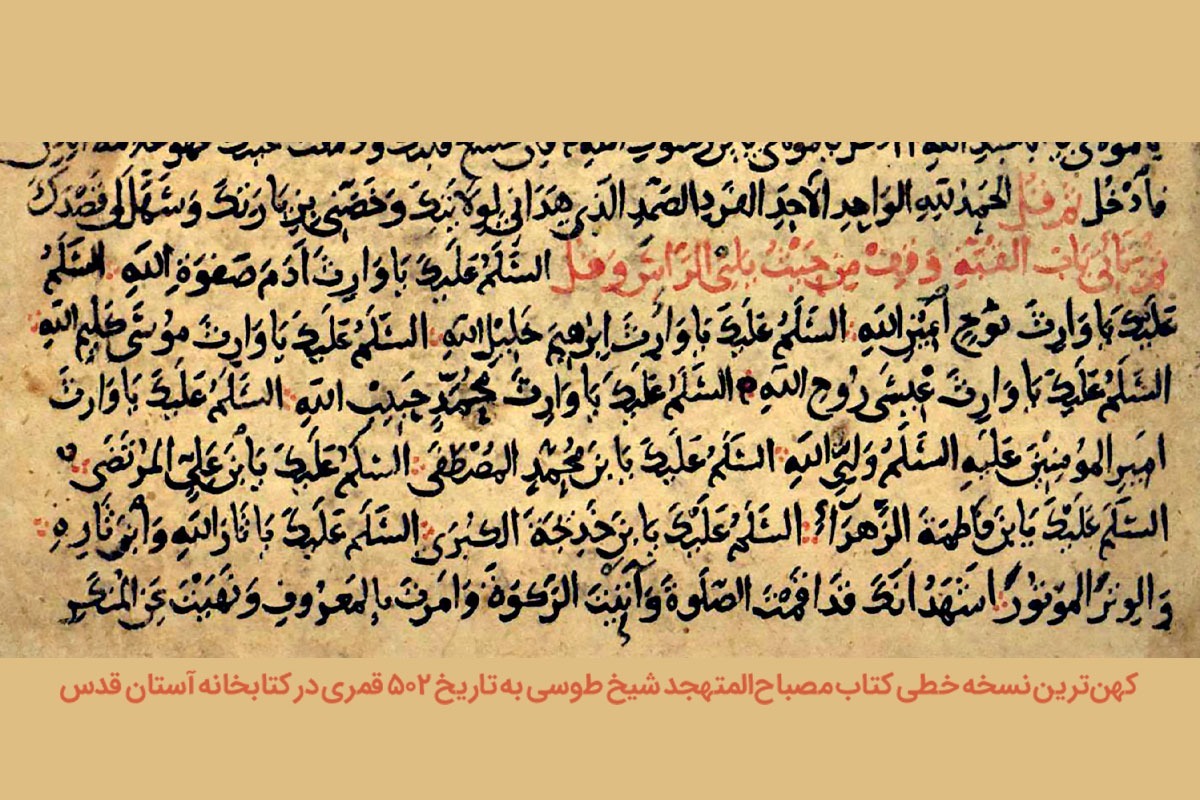 فادخل ثم قل الحمد لله الواحد الأحد الفرد الصمد الذي هداني لولايتك وخصني بزيارتك وسهل لي قصدك
ثم تأتي باب القبة وقف من حيث يلي الرأس وقل السلم عليك يا وارث آدم صفوة الله السلم
عليك يا وارث نوح أمين الله السلم عليك يا وارث إبرهيم خليل الله السلم عليك يا وارث موسى كليم الله
السلم عليك يا وارث عيسى روح الله السلم عليك يا وارث محمد حبيب الله السلم عليك يا وارث
امير المومنين عليه السلم ولي الله السلم عليك يا بن محمد المصطفى السلم عليك يا بن علي المرتضى
السلم عليك يا بن فاطمة الزهراء السلم عليك يا بن خديجة الكبرى السلم عليك يا ثار الله وابن ثاره
والوتر الموتور اشهد انك قد اقمت الصلوة وآتيت الزكوة وامرت بالمعروف ونهيت عن المنكر
کهن‌ترین نسخه خطی کتاب مصباح‌المتهجد شیخ طوسی به تاریخ ۵۰۲ قمری در کتابخانه آستان قدس